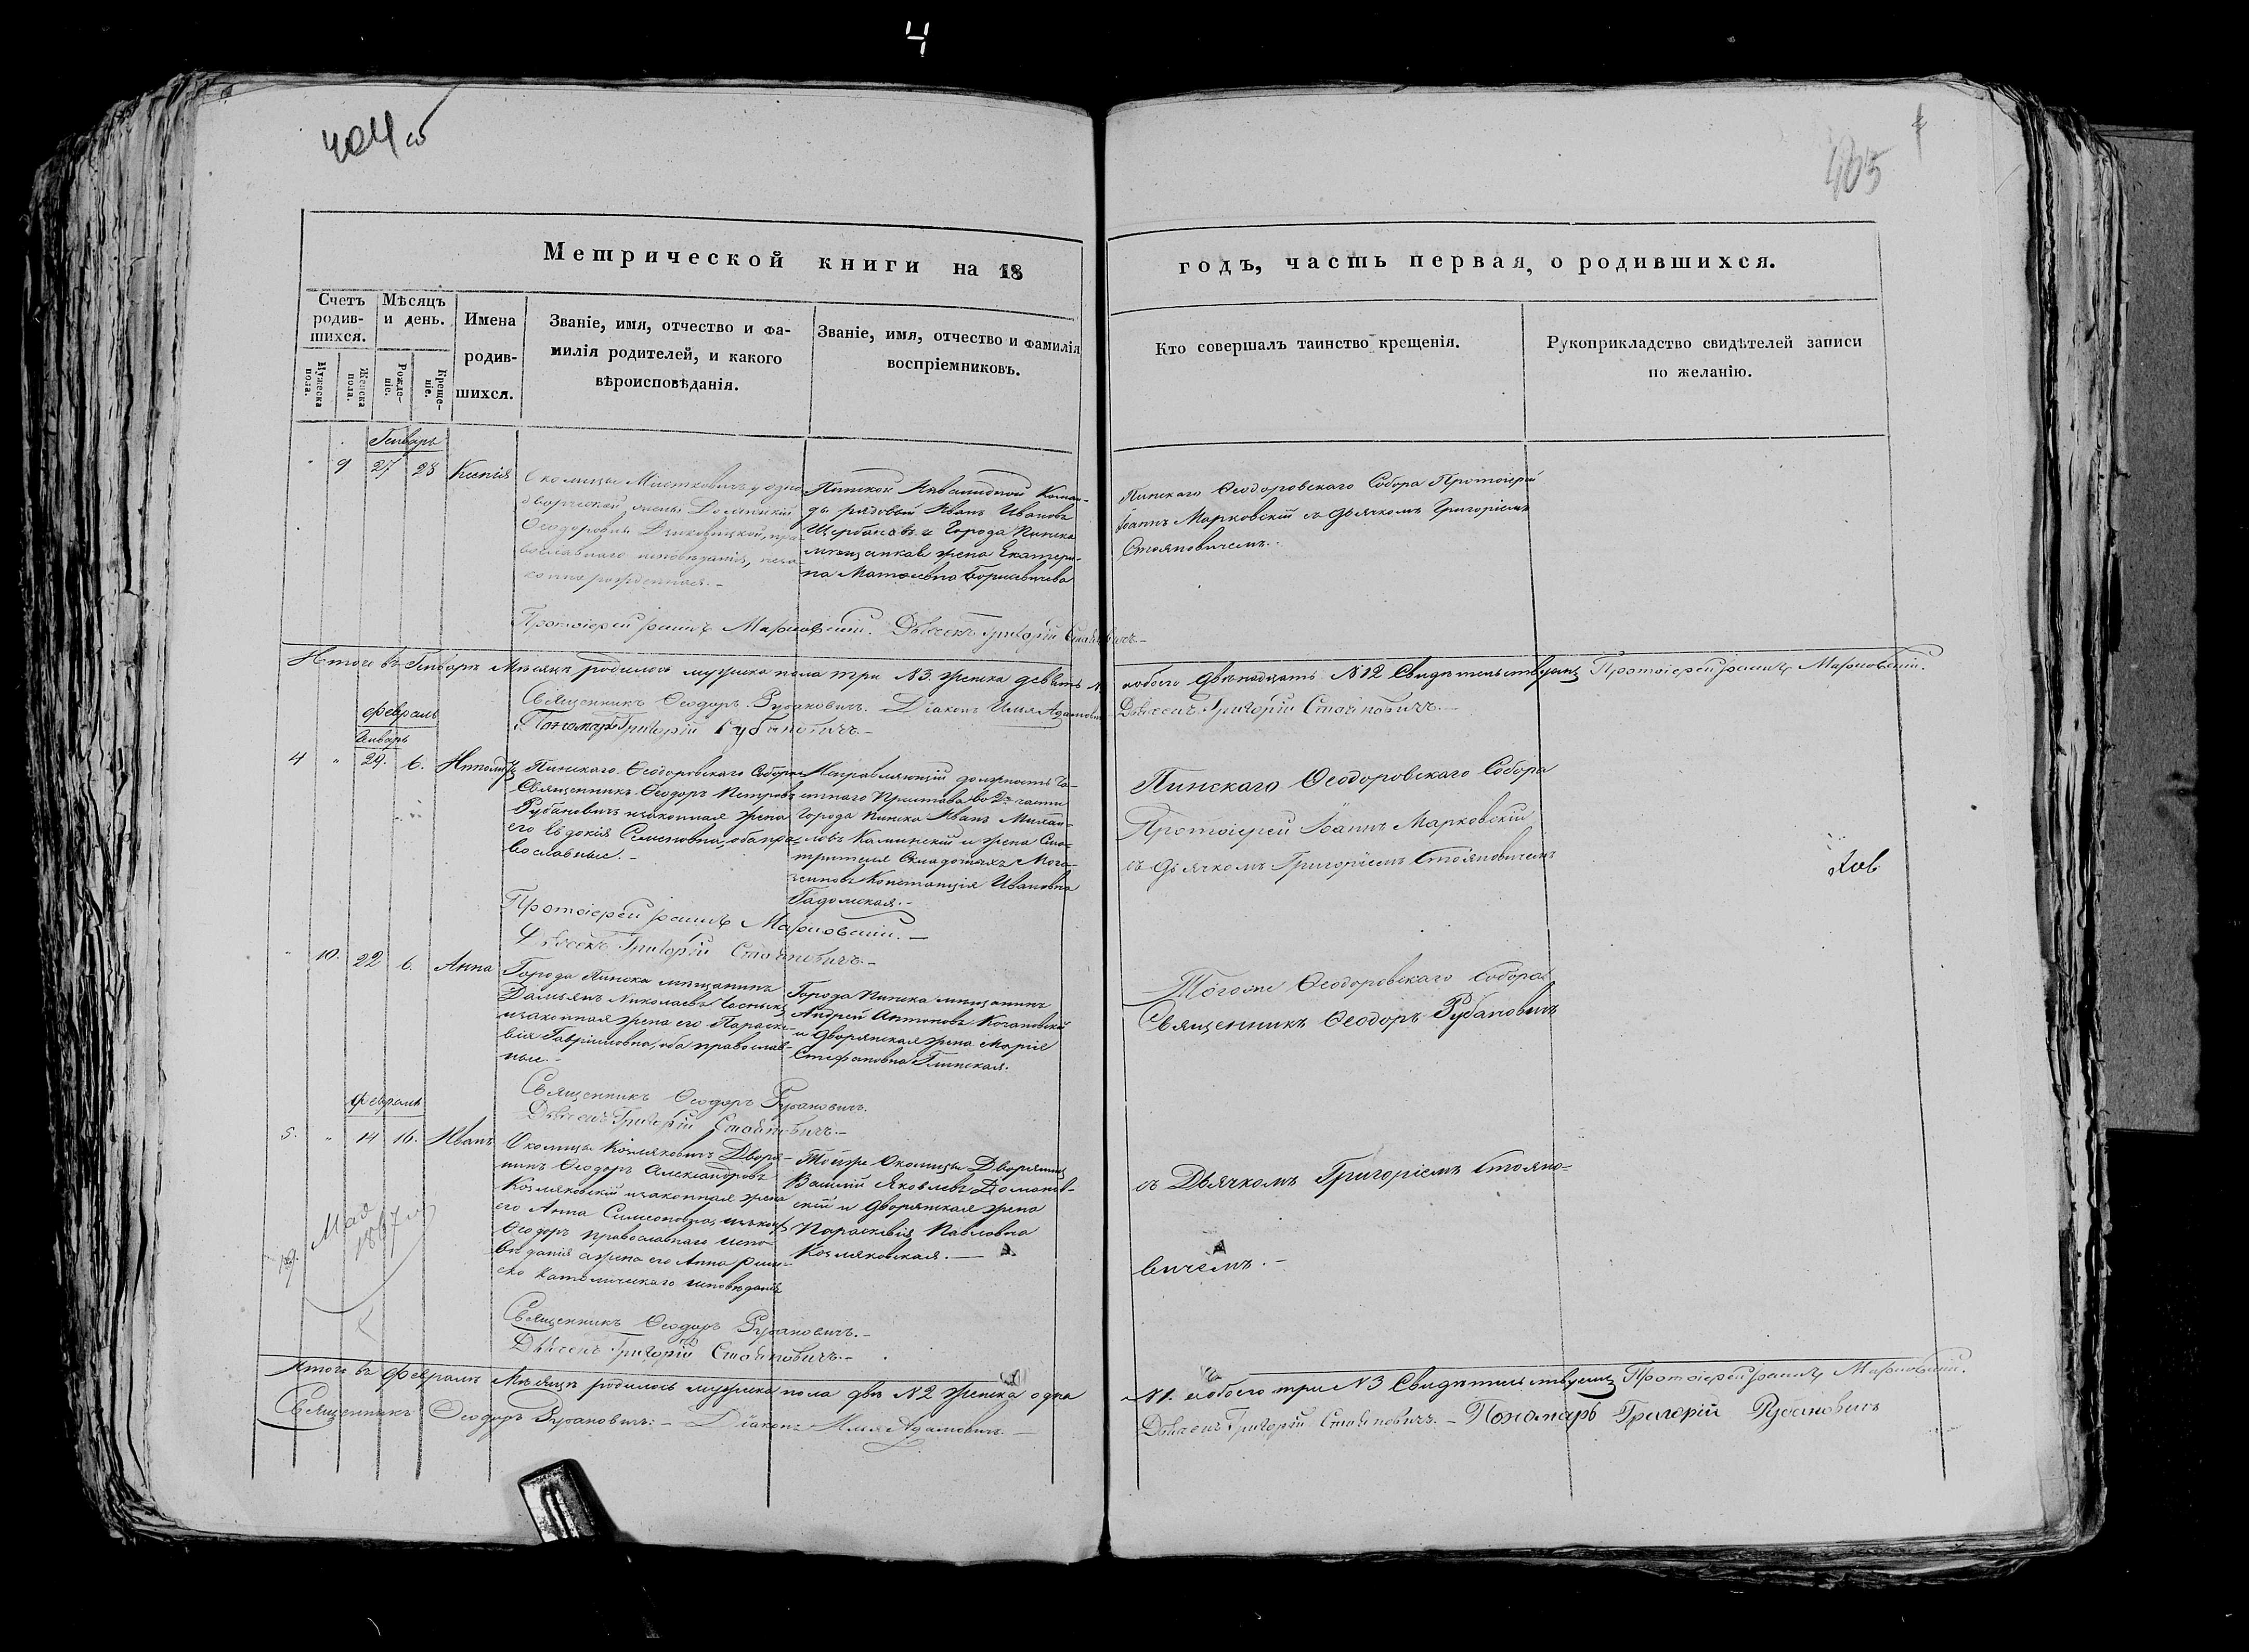 4
404 об
405
Метрической книги на 18
годъ, часть первая, о родившихся.
Счетъ родив-
шихся.
Мужеска пола.
Женска пола.
Мѣсяцъ
и день.
Рожде-
ніе.
Креще-
ніе.
Имена
родив-
шихся.
Званіе, имя, отчество и фа-
милія родителей, и какого
вѣроисповѣданія.
Званіе, имя, отчество и фамилія
воспріемниковъ.
Кто совершалъ таинство крещенія.
Рукоприкладство свидѣтелей записи
по желанію.
Генварь
" 9 27 28 Ксенія
Околицы Місткович у одно-
дворческой жены
Ѳеодоровны пра-
вославнаго исповѣданія, неза-
конорожденная. -
Пинской Инвалидной Коман-
ды рядовый Иванъ Ивановъ
Щербаковъ и Города Пинска
мѣщанкая жена Екатери-
на Матѳеевна Борисевичева
Пинскаго Ѳеодоровскаго Собора Протоіерей
Іоаннъ Марковскій съ Дьячкомъ Григоріемъ
Стояновичемъ. -
Протоіерей Іоаннъ Марковскій. Дьячекъ Григорій Стояновичъ. -
Итого въ Генварѣ Мѣсяцѣ родилось мужеска пола три №3. женска девять №
обоего двѣнадцать №12 Свидѣтельствуемъ Протоіерей Іоаннъ Марковскій.
Священникъ Ѳеодоръ Рубановичъ. Діаконъ Илія Адамовичъ
Дьячекъ Григорій Стояновичъ. -
Пономарь Григорій Рубановичъ. -
Февраль
Генварь
4 " 29. 6. Ипполитъ
Пинскаго Ѳеодоровскаго Собора
Священникъ Ѳеодоръ Петровъ
Рубановичъ и законная жена
его Евдокія Семеновна, оба пра-
вославные. -
Исправляющій должность Ча-
стнаго Пристава во 2й части
Города Пинска Иванъ Михай-
ловъ Каминскій и жена Смо-
трителя
Констанція Ивановна
Гадомская. -
Пинскаго Ѳеодоровскаго Собора
Протоіерей Іоаннъ Марковскій
съ Дьячкомъ Григоріемъ Стояновичемъ
Протоіерей Іоаннъ Марковскій. -
Дьячекъ Григорій Стояновичъ. -
" 10. 22 6. Анна
Города Пинска мѣщанинъ
Дамьянъ Николаевъ
и законная жена его Параске-
вія Гавриловна, оба православ-
ные. -
Города Пинска мѣщанинъ
Андрей Антоновъ Качановскій
и Дворянская жена Марія
Стефановна Глинская.
Тогоже Ѳеодоровскаго Собора
Священникъ Ѳеодоръ Рубановичъ
Священникъ Ѳеодоръ Рубановичъ.
Дьячекъ Григорій Стояновичъ. -
Февраль
5. " 14 16. Иванъ
Околицы Козляковичъ Дворя-
нинъ Ѳеодоръ Александровъ
Козляковскій и законная жена
его Анна Симеоновна,
Ѳеодоръ православнаго испо-
вѣданія а жена его Анна рим-
ско католическаго исповѣданія
Тойже Околицы Дворянинъ
Василій Яковлевъ Доманов-
скій и Дворянская жена
Параскевія Павловна
Козляковская. -
съ Дьячкомъ Григоріемъ Стояно-
вичемъ. -
Мая
1867 г
Священникъ Ѳеодоръ Рубановичъ. -
Дьячекъ Григорій Стояновичъ. -
Итого въ Февралѣ Мѣсяцѣ родилось мужеска пола два №2 женска одна
№1. обоего три №3 Свидѣтельствуемъ Протоіерей Іоаннъ Марковскій.
Священникъ Ѳеодоръ Рубановичъ: - Діаконъ Илія Адамовичъ. -
Дьячекъ Григорій Стояновичъ. - Пономарь Григорій Рубановичъ